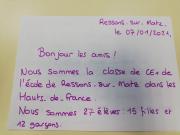 Ressons. sur. Matz.
le 07/01/2021,
Bonjour les amis!
Nous sommes la classe de CE1 de
l'école de Ressons. sur. Matz dans les
Hauts. de. france.
Nous sommes 27 élèves: 15 filles et
12 garçons.